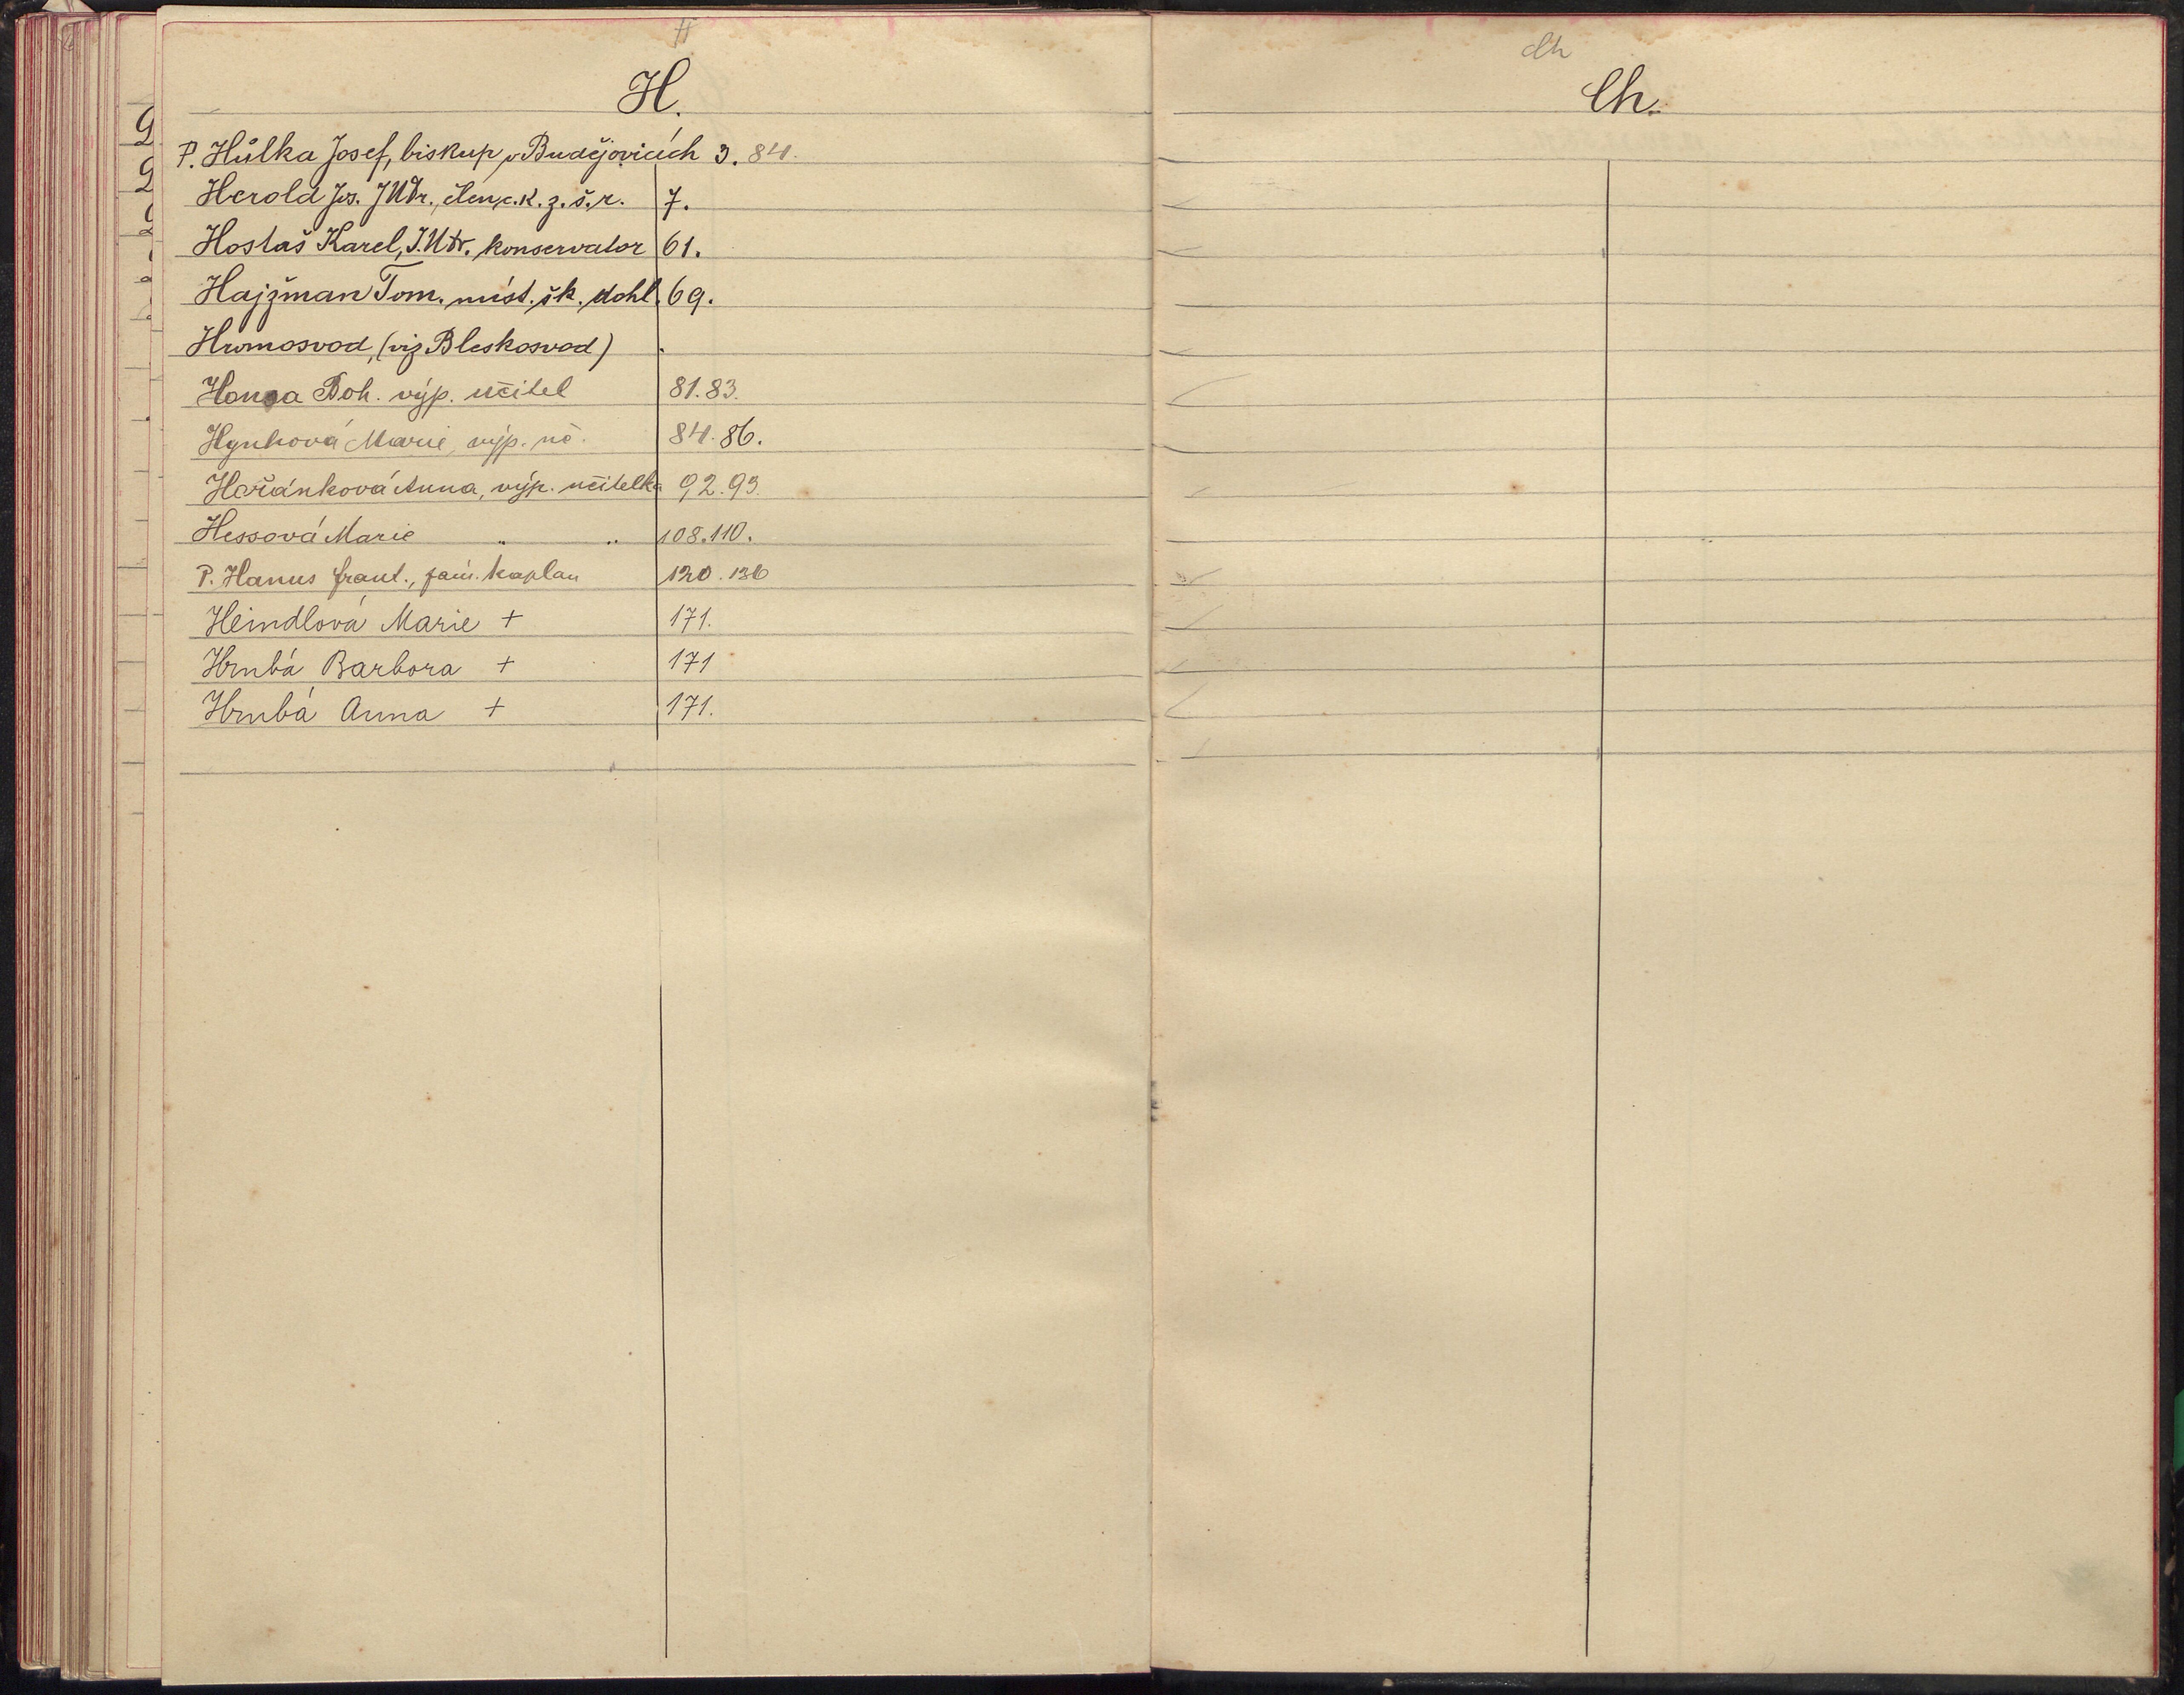 H
H.
P. Hůlka Josef, biskup v Budějovicích 3. 84.
Herold Jos. JUDr., člen c. k. z. š. r. 7.
Hostaš Karel, J.UDr. konservator 61.
Hajžman Tom. míst. šk. dohl. 69.
Hromosvod, (viz Bleskosvod)
Boh. výp. učitel 81. 83.
Hynková Marie, výp. uč. 84. 86.
Hořánková Anna, výp. učitelka 92. 93.
Hessová Marie " " 108. 110.
P. Hanus Frant., kaplan 120. 136
Heindlová Marie + 171.
Hrubá Barbora + 171
Hrubá Anna + 171.
Ch
Ch.